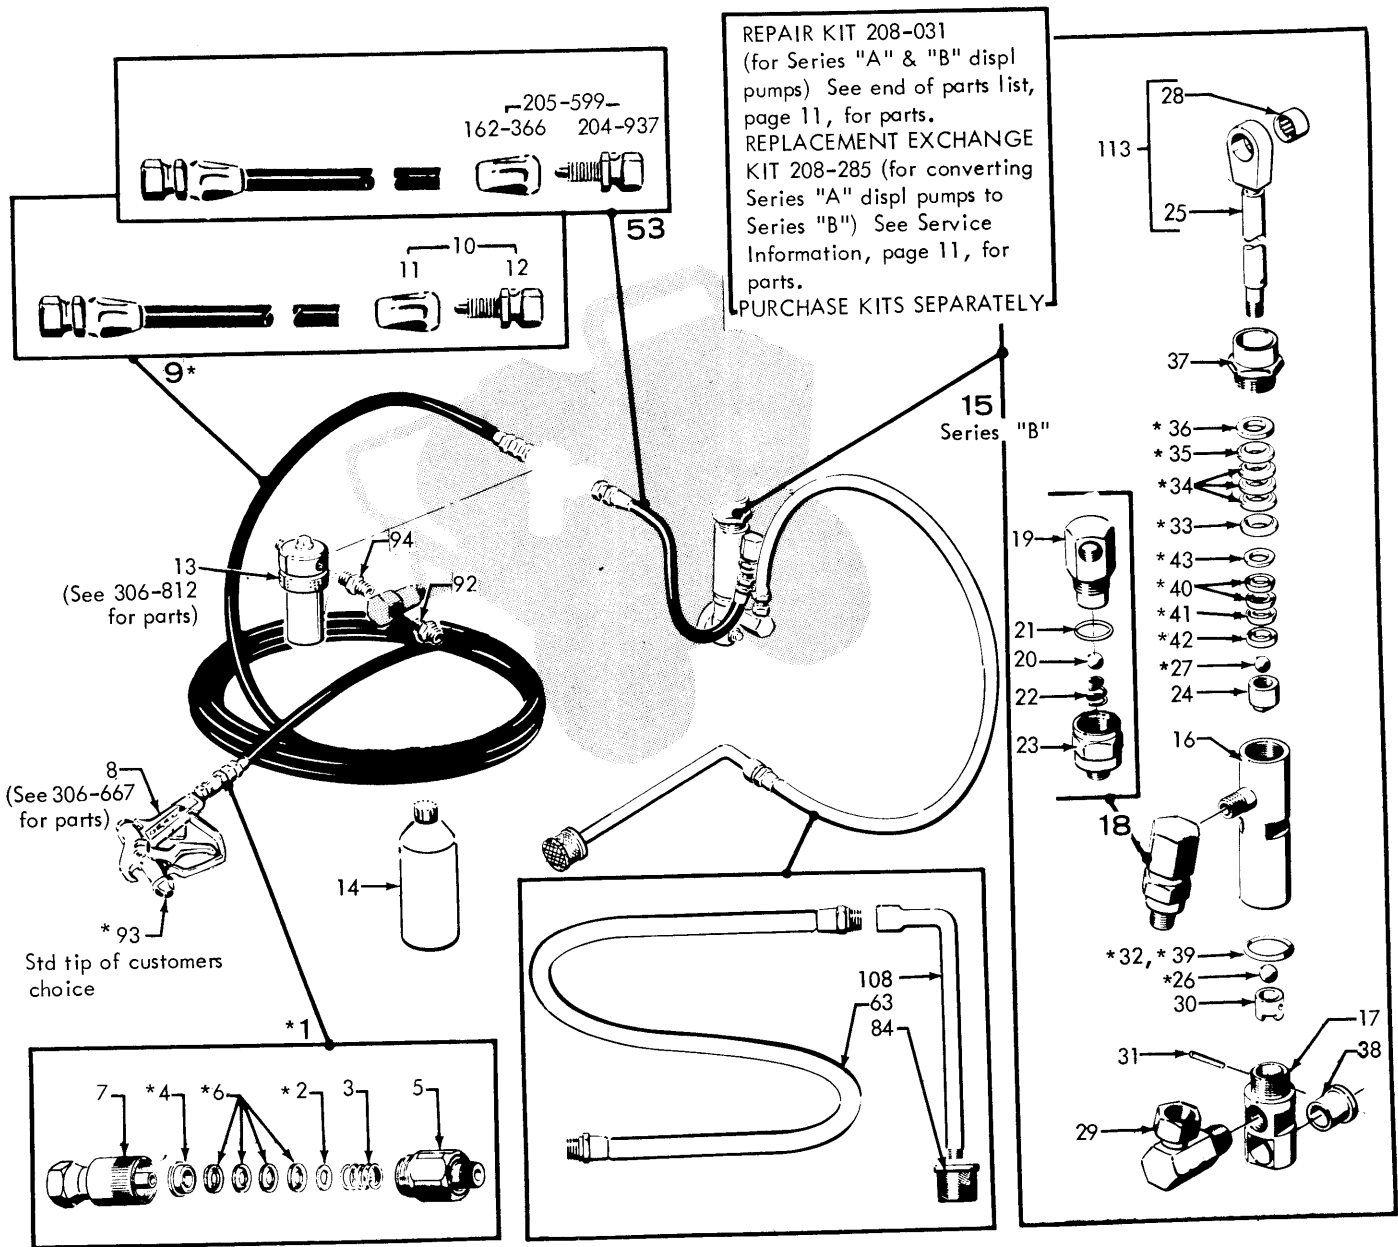 REPAIR KIT 208-031
(for Series "A" & "B" displ
pumps) See end of parts list,
page 11, for parts.
REPLACEMENT EXCHANGE
KIT 208-285 (for converting
Series "A" displ pumps to
Series "B") See Service
Information, page 11, for
parts.
PURCHASE KITS SEPARATELY
205-599
162-366 204-937
53
10
11 12
9*
15
Series "B"
94
92
13
(See 306-812
for parts)
8
(See 306-667
for parts)
*93
Std tip of customers
choice
14
*1
7 *4 *6 *2 3 5
108
63
84
28
113
25
37
*36
*35
*34
*33
*43
*40
*41
*42
*27
24
16
19
21
20
22
23
18
*32, *39
*26
30
17
31
38
29